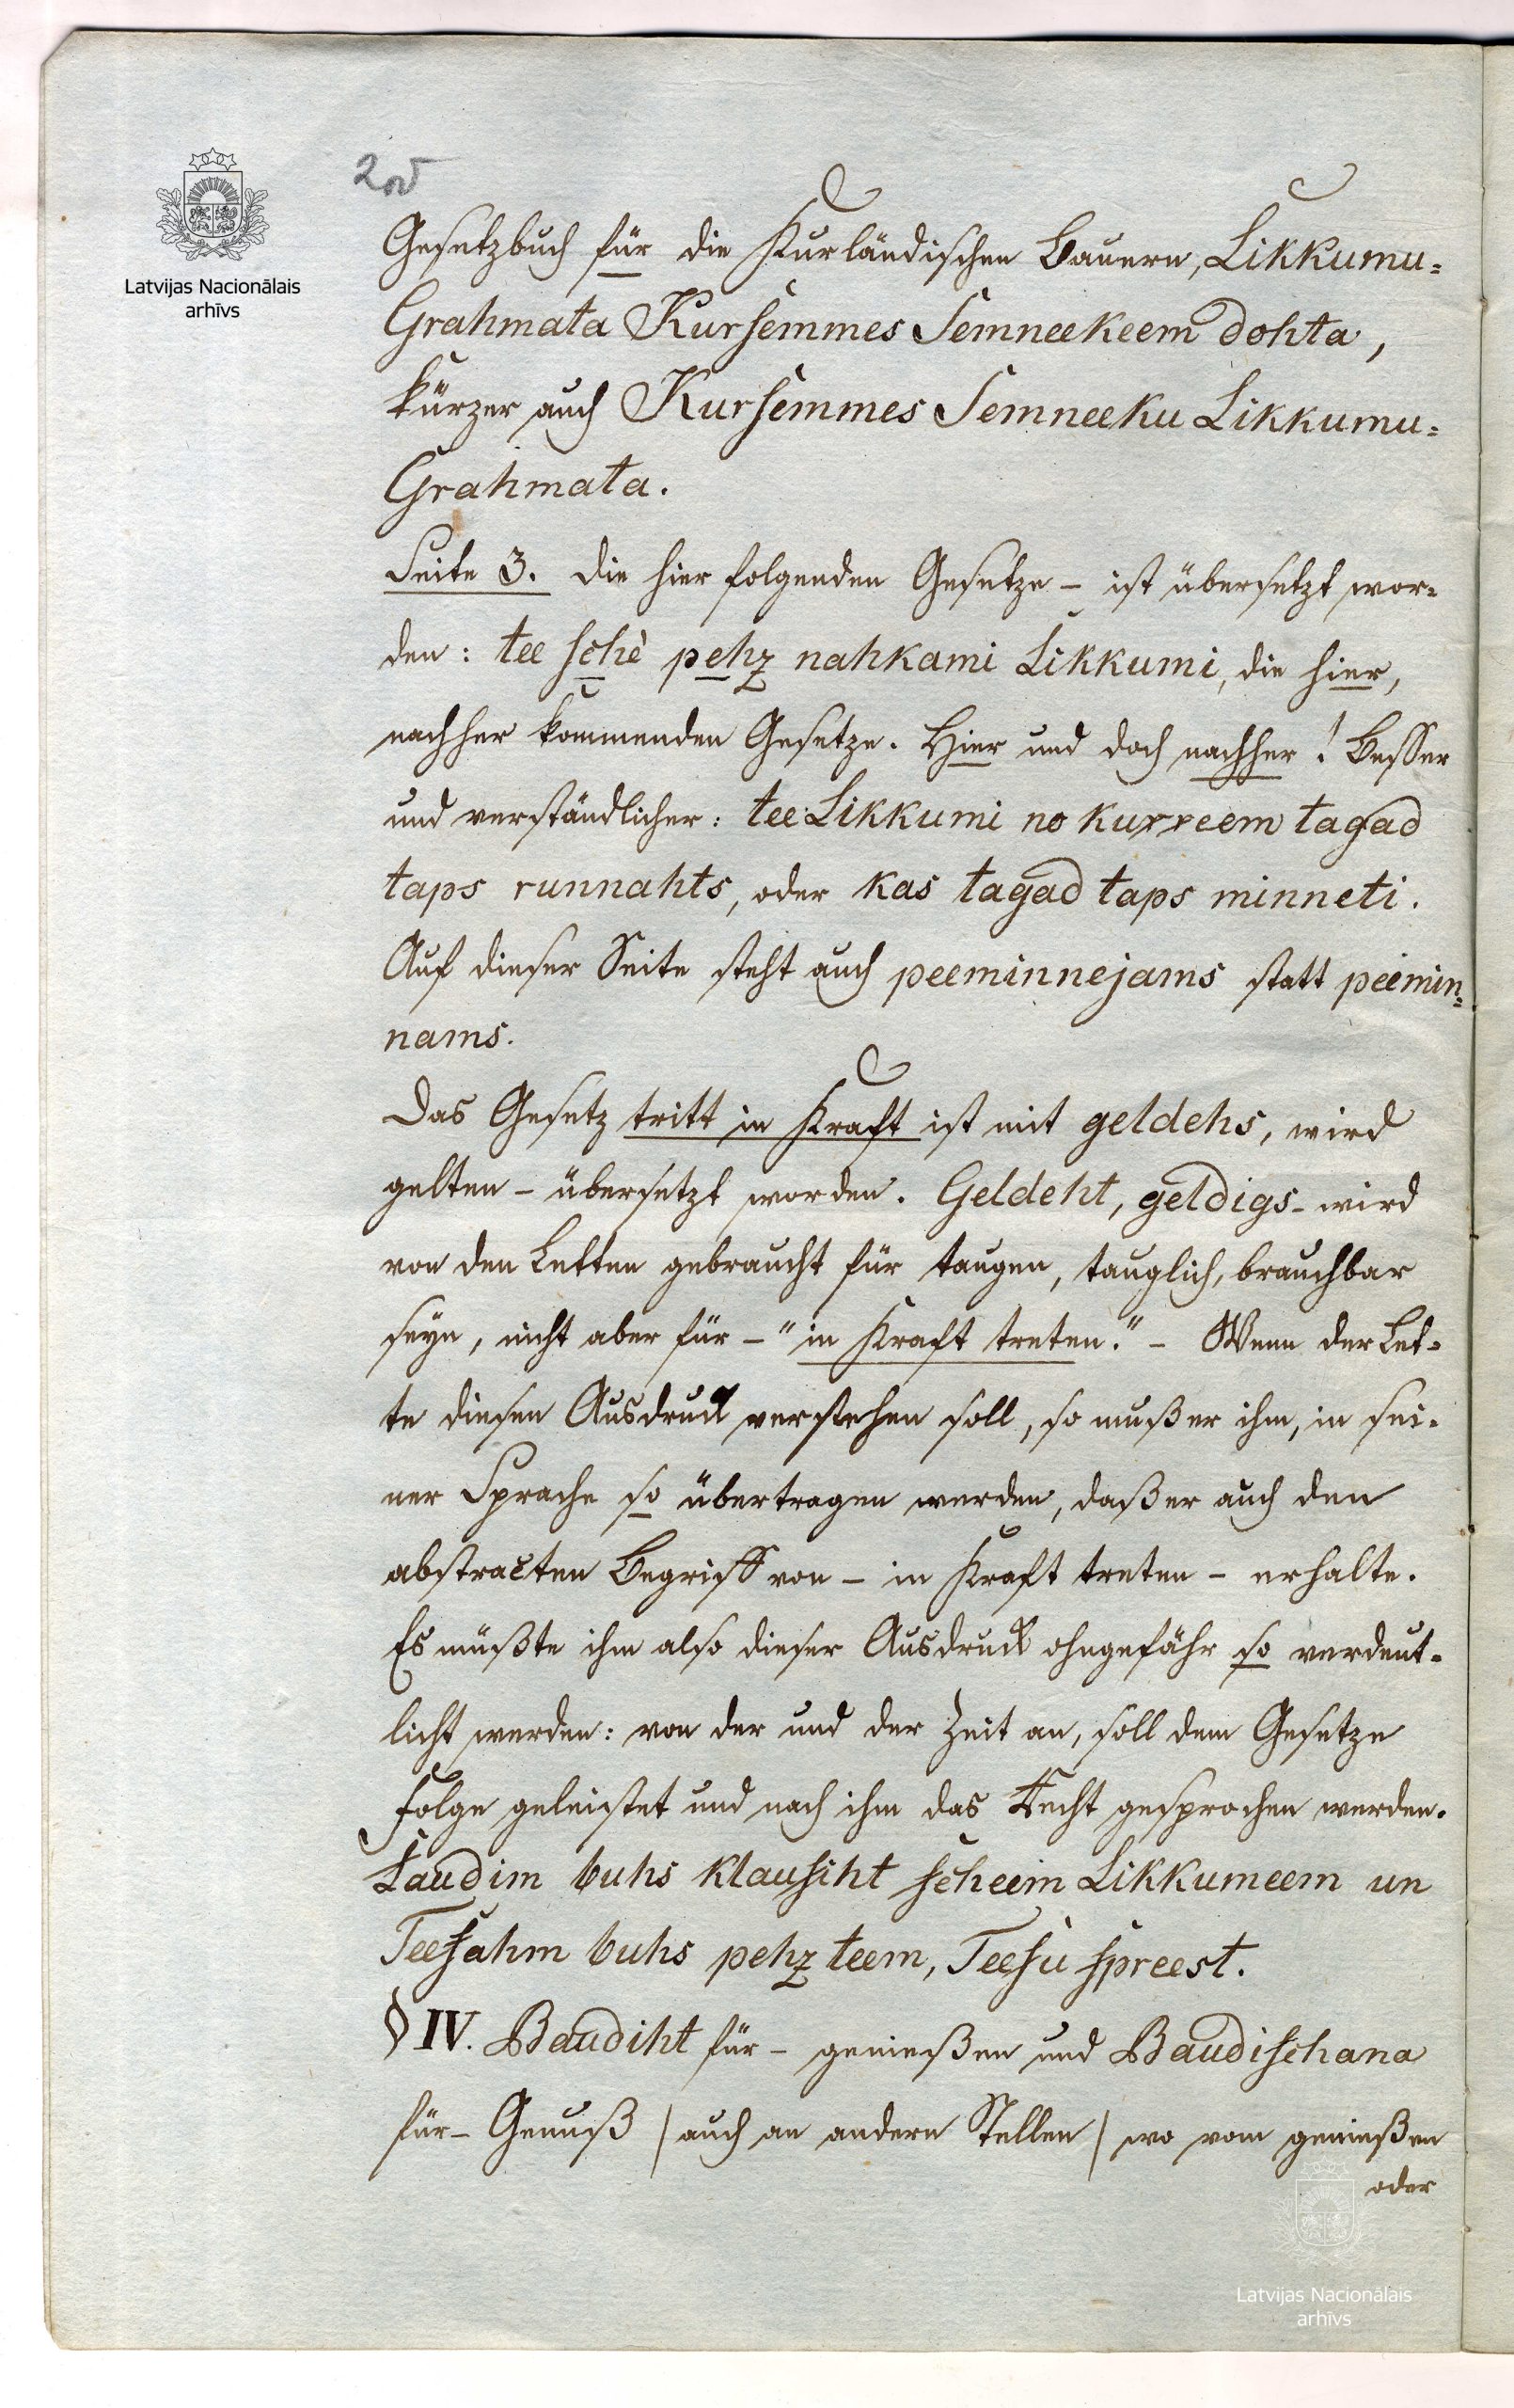 Latvijas Nacionālais
arhīvs
2v
Gesetzbuch für die Kurländischen Bauern, Likkumu-
Grahmata Kursemmes Semneekeem dohta,
kürzer auch Kursemmes Semneeku Likkumu-
Grahmata.
Seite 3. die hier folgenden Gesetze – ist übersetzt wor-
den: tee schè pehz nahkami Likkumi, die hier,
nachher kommenden Gesetze. Hier und doch nachher! Besser
und verständlicher: tee Likkumi no kurreem tagad
taps runnahts, oder kas tagad taps minneti.
Auf dieser Seite steht auch peeminnejams statt peemin-
nams.
Das Gesetz tritt in Kraft ist mit geldehs, wird
gelten – übersetzt worden. Geldeht, geldigs – wird
von den Letten gebraucht für taugen, tauglich, brauchbar
seyn, nicht aber für – "in Kraft treten." – Wenn der Let-
te diesen Ausdruck verstehen soll, so muß er ihm, in sei-
ner Sprache so übertragen werden, daß er auch den
abstracten Begriff von – in Kraft treten – erhalte.
Es müßte ihm also dieser Ausdruck ohngefähr so verdeut-
licht werden: von der und der Zeit an, soll dem Gesetze
Folge geleistet und nach ihm das Recht gesprochen werden.
Laudim buhs klausiht scheem Likkumeem un
Teesahm buhs pehz teem, Teesu spreest.
§ IV. Baudiht für – genießen und Baudischana
für – Genuß / auch an andern Stellen / wo vom genießen
oder
Latvijas Nacionālais
arhīvs